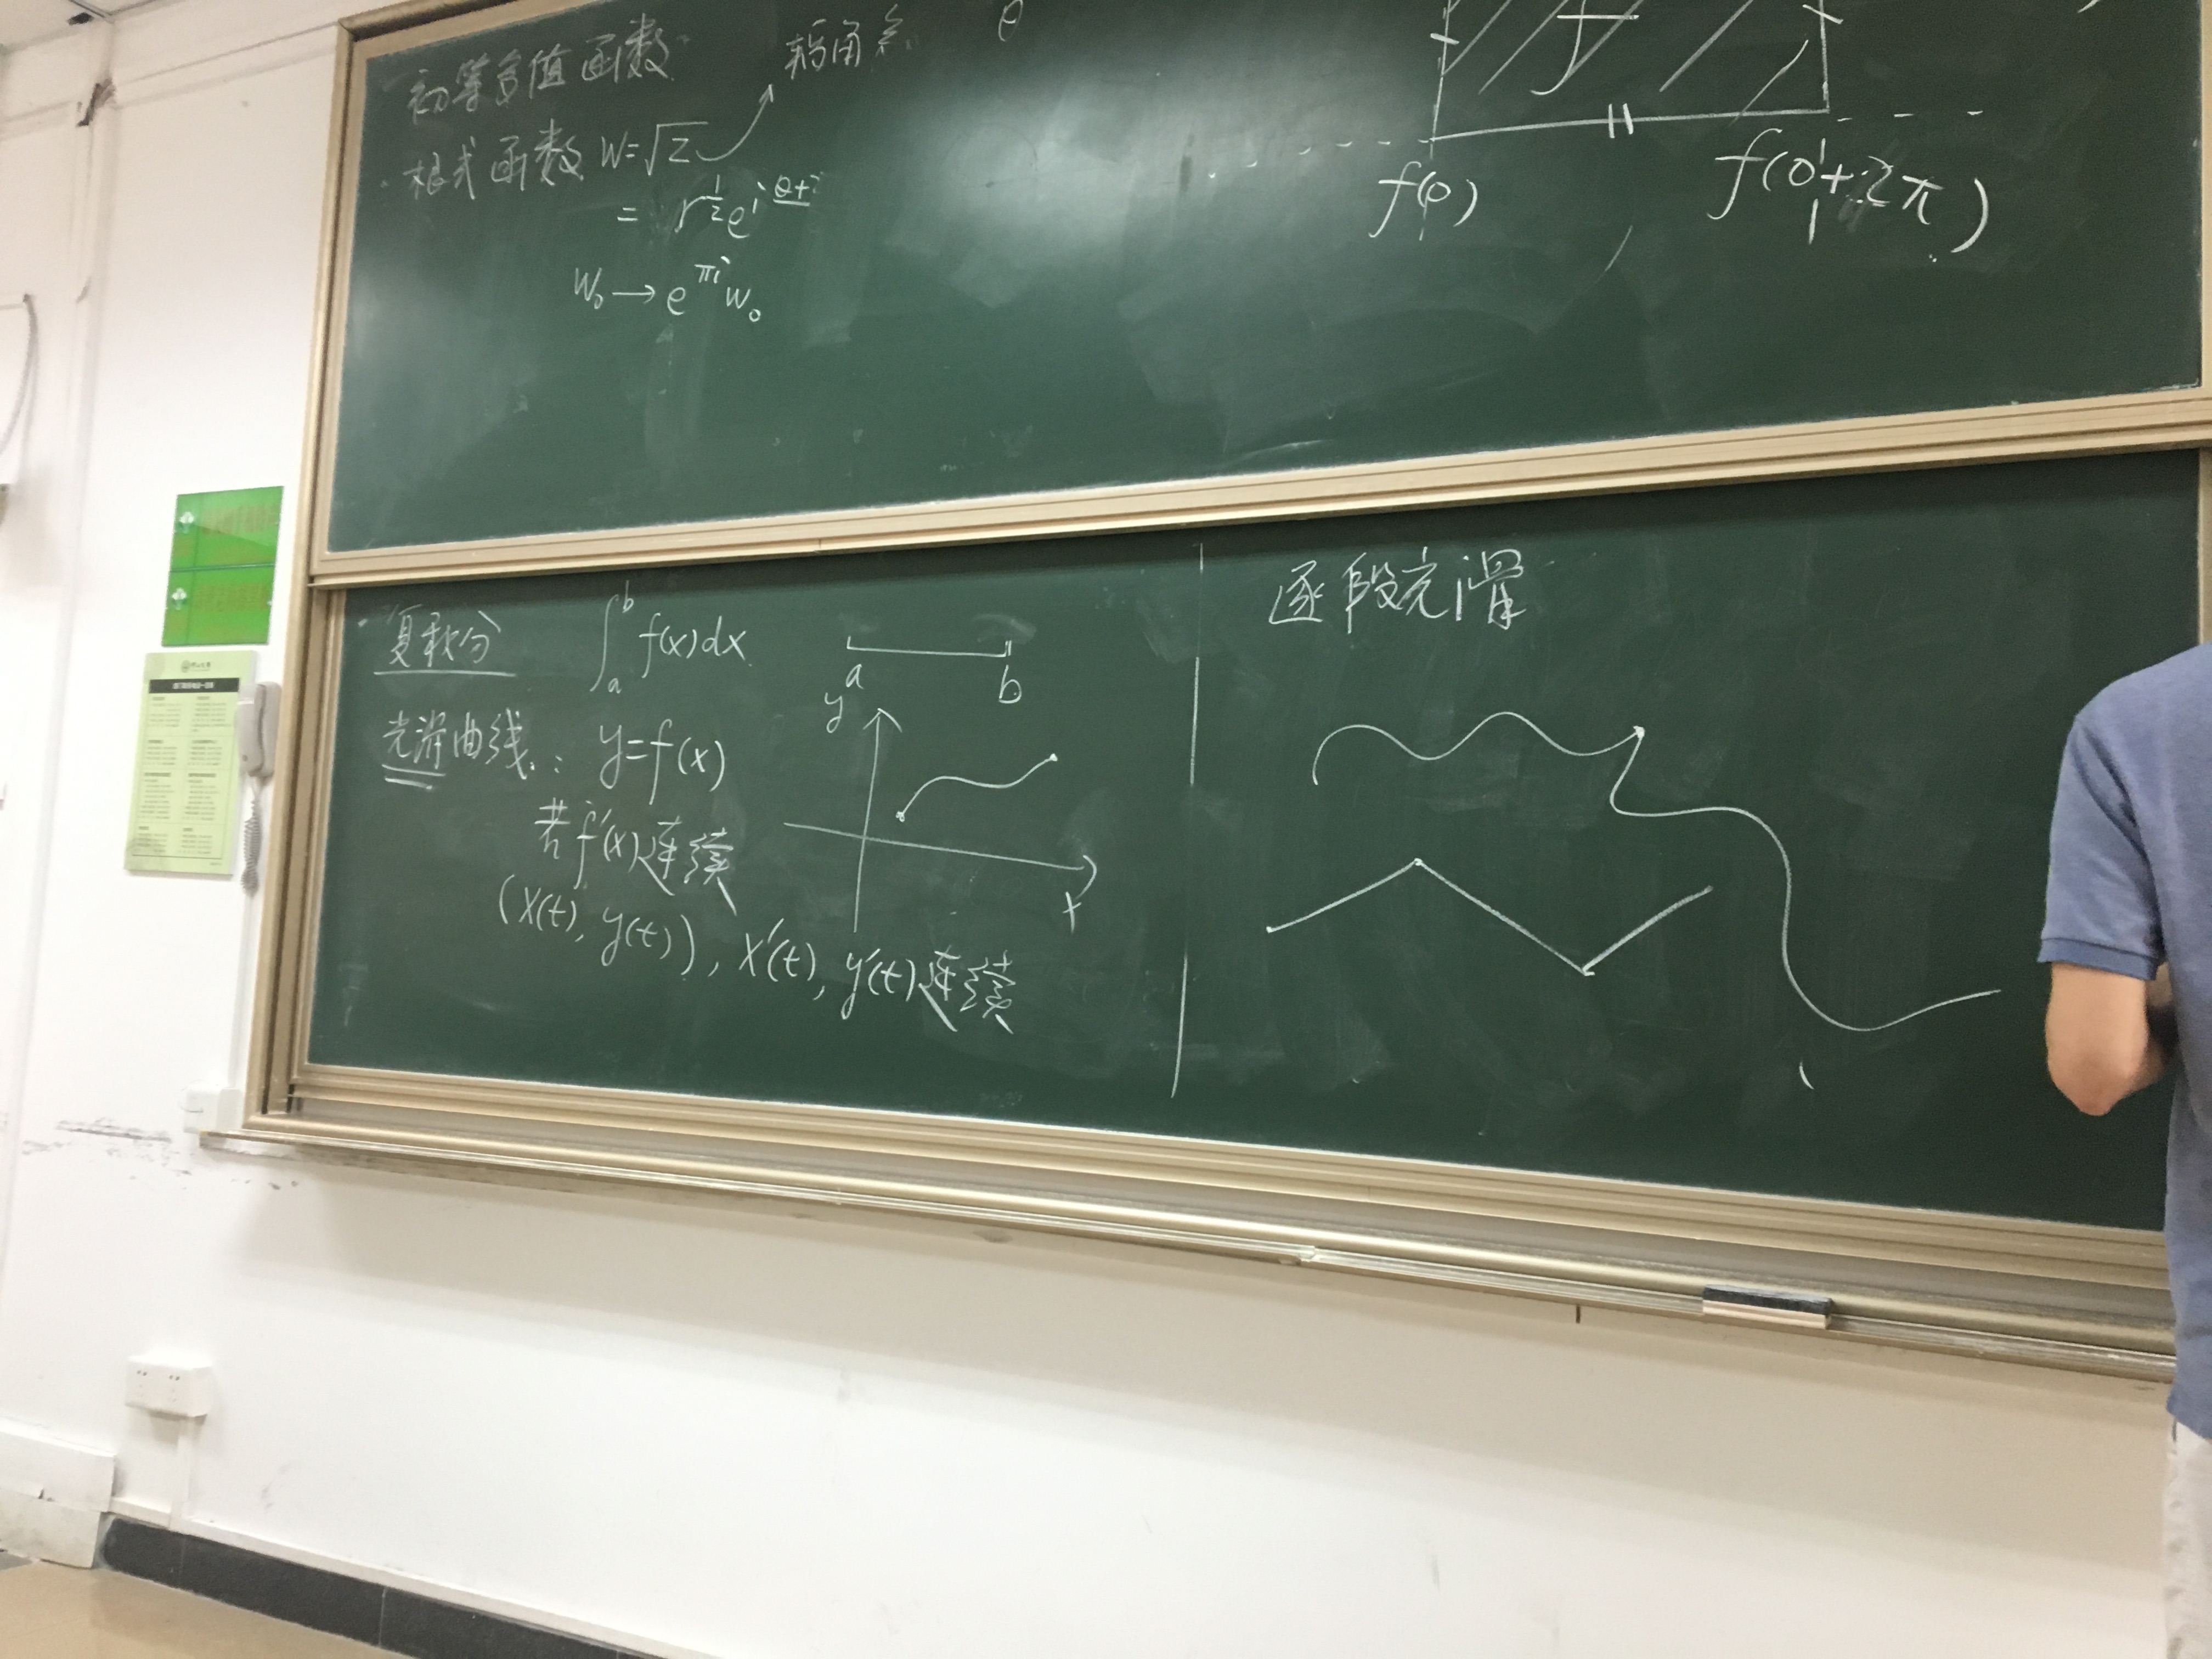 初等多值函数
辐角
θ
根式函数 W=√z
= r^{1/2} e^{i
W₀ → e^{πi} W₀
f(0)
f(0+2π)
复积分 ∫_a^b f(x)dx
a b
光滑曲线: y=f(x)
y
x
若f'(x)连续
(x(t), y(t)), x'(t), y'(t)连续
逐段光滑